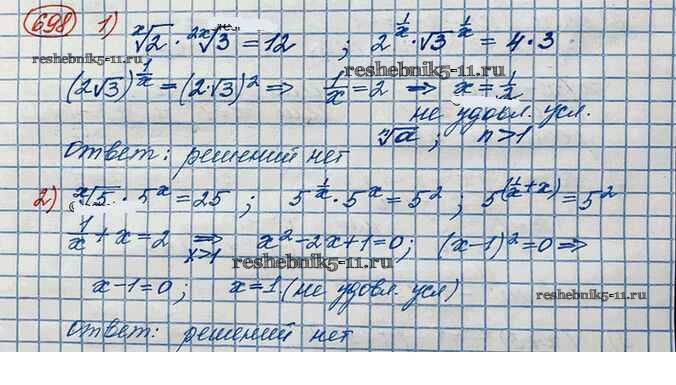 698 1) ˣ√2 · ²ˣ√3 = 12 ; 2^(1/x) · √3^(1/x) = 4·3
reshebnik5-11.ru reshebnik5-11.ru
(2√3)^(1/x) = (2·√3)² ⇒ 1/x = 2 ⇒ x = 1/2
не удовл. усл.
ⁿ√a ; n>1
ответ: решений нет
2) ˣ√5 · 5ˣ = 25 ; 5^(1/x) · 5ˣ = 5² ; 5^(1/x + x) = 5²
1/x + x = 2 ⇒ x>1 x² - 2x + 1 = 0; (x-1)² = 0 ⇒
reshebnik5-11.ru
x - 1 = 0 ; x = 1 (не удовл. усл)
reshebnik5-11.ru
ответ: решений нет